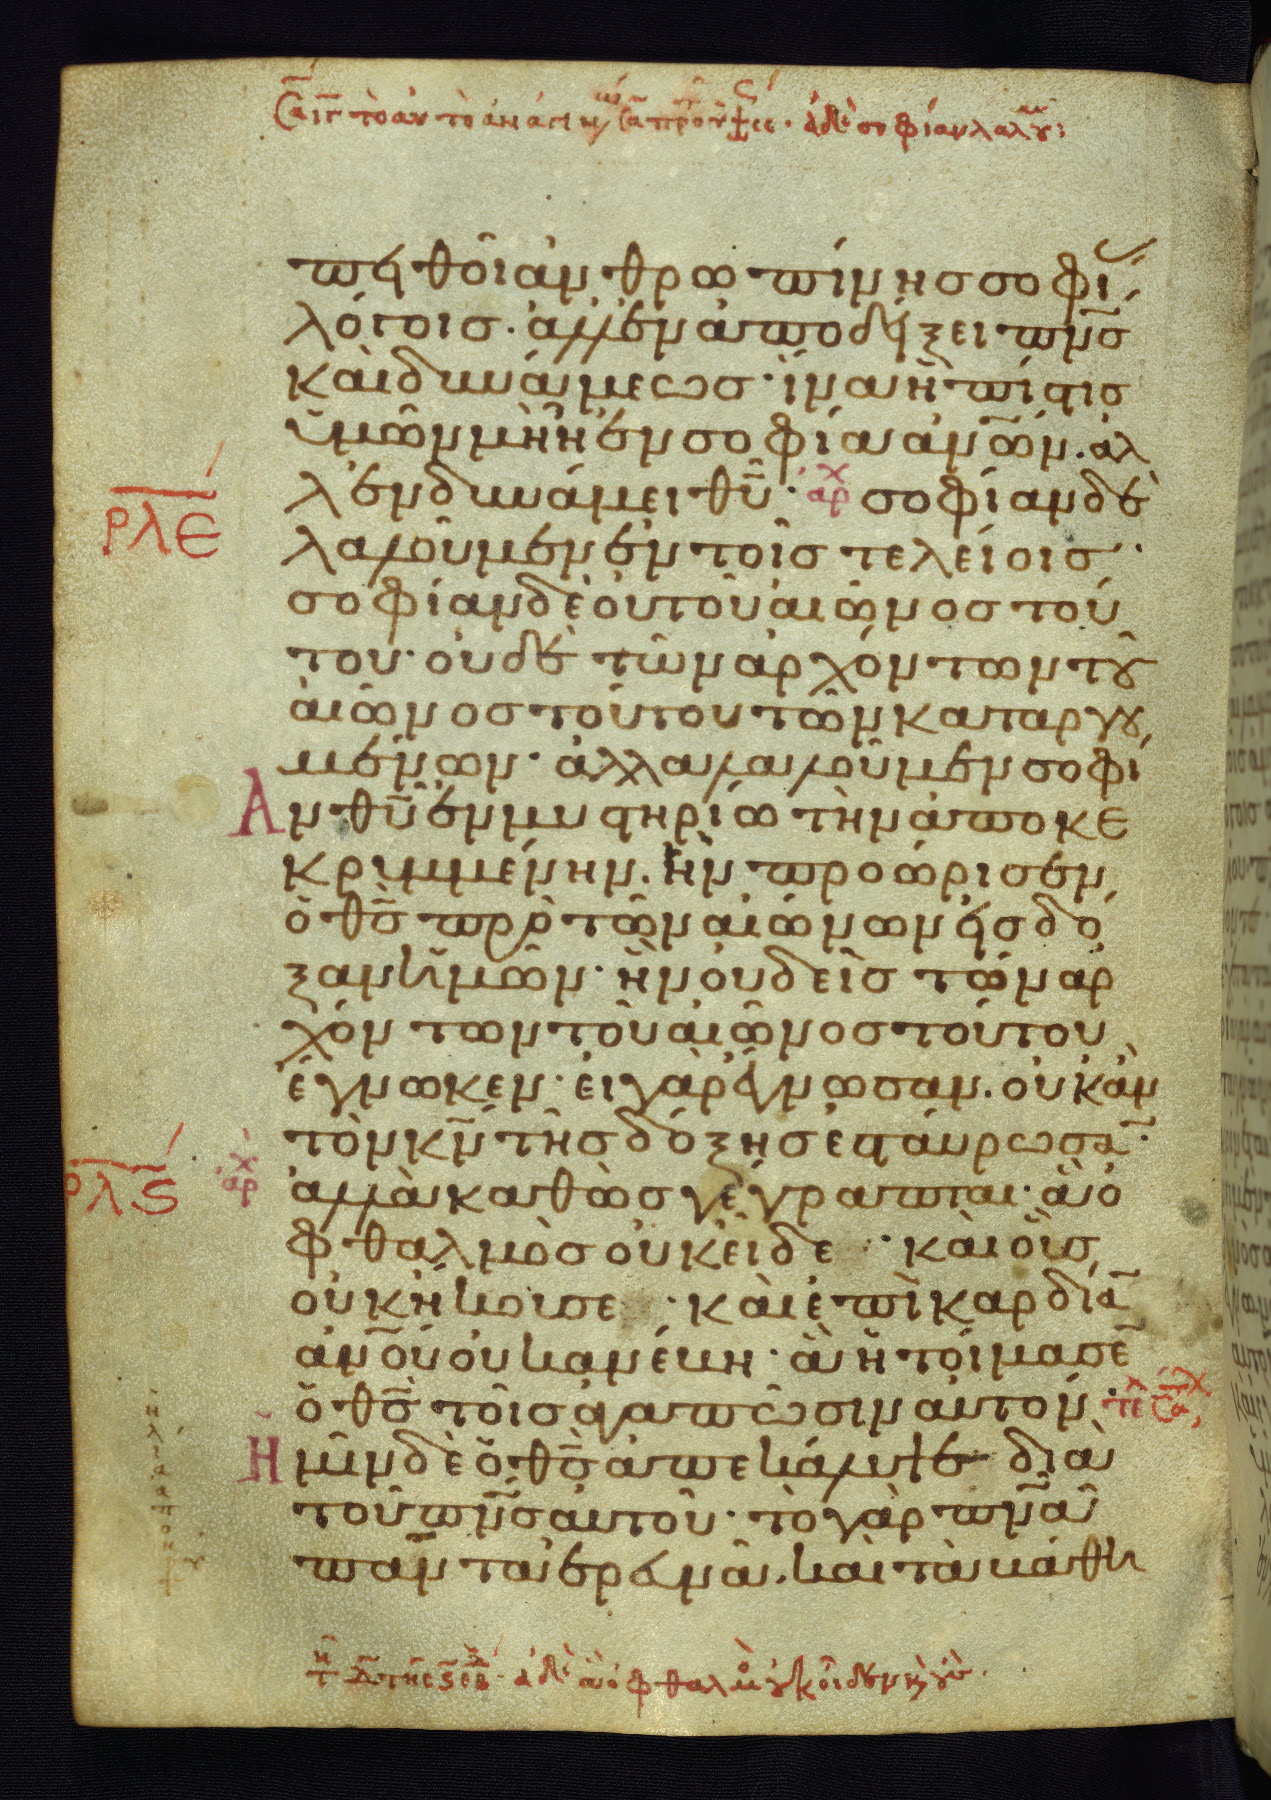 πειθοῖ ἀνθρωπίνης σοφί
λόγοις. ἀλλ' ἐν ἀποδείξει πν̅ς
καὶ δυνάμεως· ἵνα ἡ πίστις
ὑμῶν μὴ ἦ ἐν σοφία ἀν̅ων. ἀλ
λ' ἐν δυνάμει θυ̅· ἀρχ σοφίαν δὲ
ρλε
λαλοῦμεν ἐν τοῖς τελείοις·
σοφίαν δὲ οὐ τοῦ αἰῶνος τού
του· οὐδὲ τῶν ἀρχόντων τοῦ
αἰῶνος τούτου τῶν καταργου
μένων· ἀλλα λαλοῦμεν σοφί
Αν θυ̅ ἐν μυστηρίω τὴν ἀποκε
κριμμένην. ἣν προώρισεν
ὁ θς̅ πρὸ τῶν αἰώνων εἰς δό
ξαν ἡμῶν· ἣν οὐδεὶς τῶν ἀρ
χόντων τοῦ αἰῶνος τούτου
ἔγνωκεν· εἰ γὰρ ἔγνωσαν. οὐκ ἂν
τὸν κν̅ τῆς δόξης ἐσταύρωσα̅·
ρλς
ἀρχ ἀλλὰ καθὼς γέγραπται· ἃ ὀ
φθαλμὸς οὐκ εἶδε· καὶ οὖς
οὐκ ἤκουσε· καὶ ἐπὶ καρδία̅
ἀν̅ου οὐκ ἀνέβη· ἃ ἡτοίμασε̅
ὁ θς̅ τοῖς ἀγαπῶσιν αὐτόν·
Ημῖν δὲ ὁ θς̅ ἀπεκάλυψε διὰ
τοῦ πν̅ς αὐτοῦ· τὸ γὰρ πν̅α
πάντα ἐρευνᾶ. καὶ τὰ βάθη